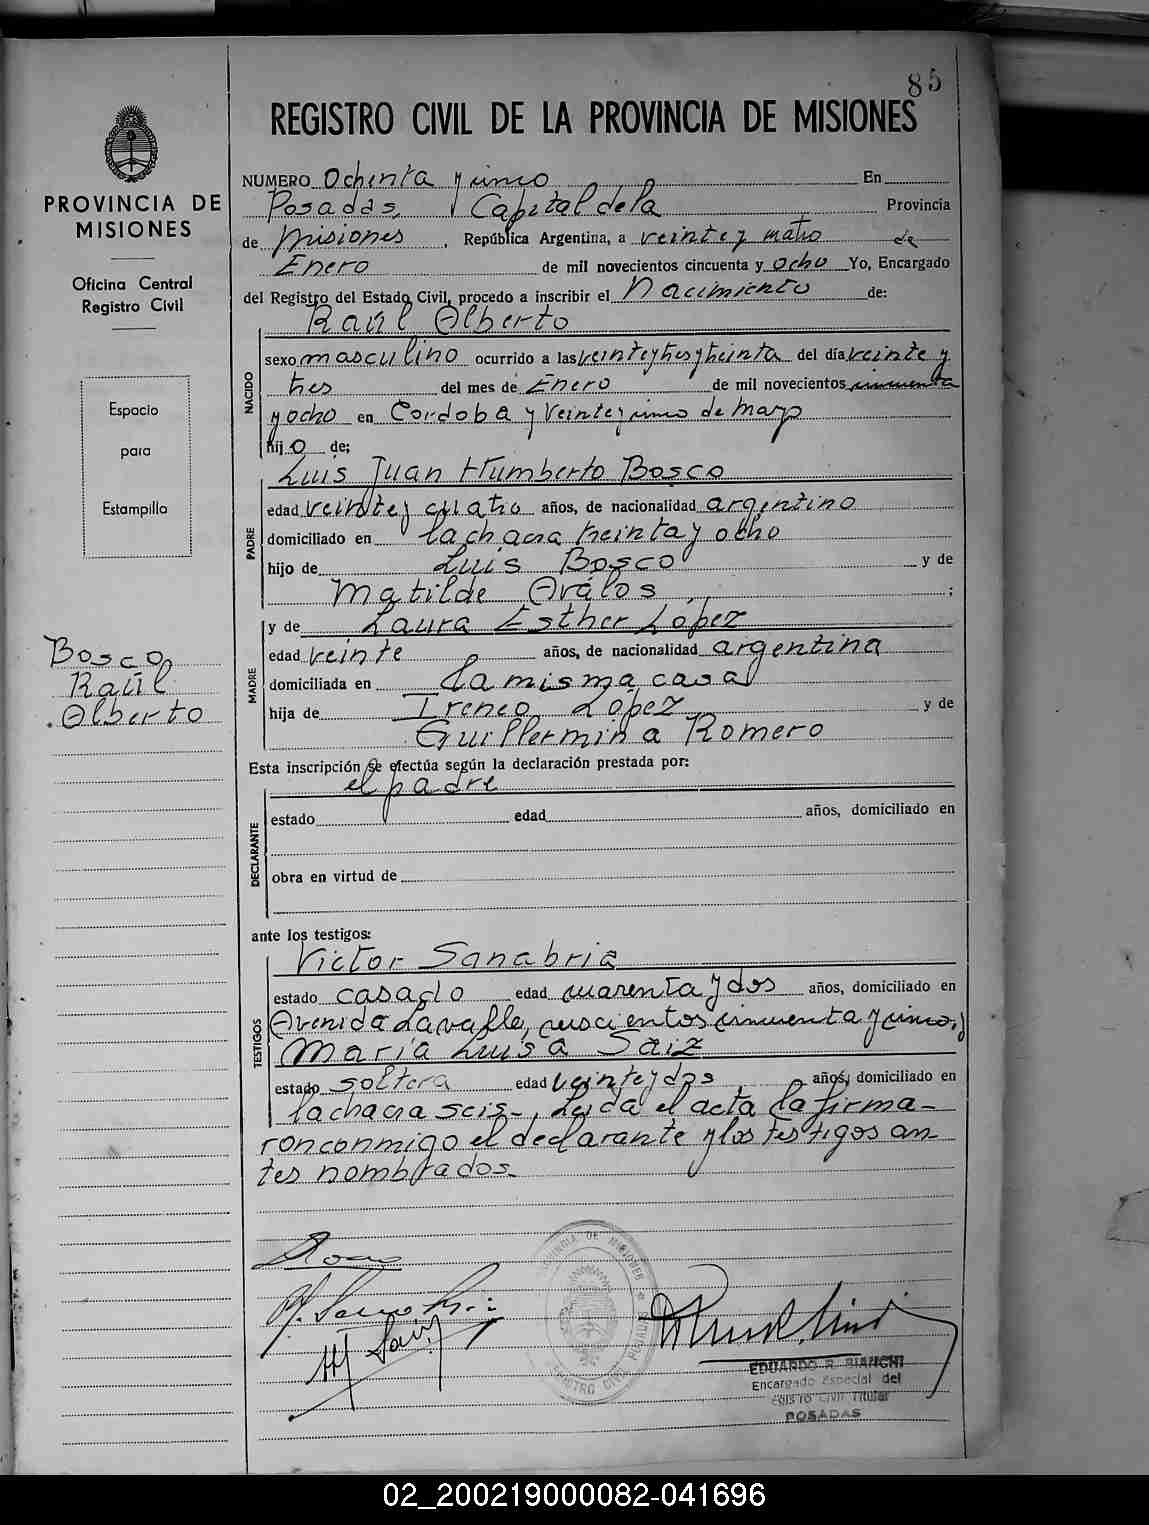 85
REGISTRO CIVIL DE LA PROVINCIA DE MISIONES
PROVINCIA DE
MISIONES
Oficina Central
Registro Civil
Espacio
para
Estampilla
Bosco
Raúl
Alberto
NUMERO Ochenta y cinco En
Posadas, Capital de la Provincia
de Misiones, República Argentina, a veinte y cuatro de
Enero de mil novecientos cincuenta y ocho Yo, Encargado
del Registro del Estado Civil, procedo a inscribir el Nacimiento de:
Raúl Alberto
NACIDO
sexo masculino ocurrido a las veinte y tres y treinta del día veinte y
tres del mes de Enero de mil novecientos cincuenta
y ocho en Cordoba y Veinte y cinco de mayo
hijo de;
Luis Juan Humberto Bosco
PADRE
edad veinte y cuatro años, de nacionalidad argentino
domiciliado en la chacra treinta y ocho
hijo de Luis Bosco y de
Matilde Avalos ;
MADRE
y de Laura Esther López
edad veinte años, de nacionalidad argentina
domiciliada en la misma casa
hija de Ireneo López y de
Guillermina Romero
Esta inscripción se efectúa según la declaración prestada por:
el padre
DECLARANTE
estado edad años, domiciliado en
obra en virtud de
ante los testigos:
Victor Sanabria
TESTIGOS
estado casado edad cuarenta y dos años, domiciliado en
Avenida Lavalle, cincuenta y cinco, y
María Luisa Saiz
estado soltera edad veinte y dos años, domiciliado en
la chacra seis -, Leida el acta la firma-
ron conmigo el declarante y los testigos an-
tes nombrados.
PROVINCIA DE MISIONES
REGISTRO CIVIL POSADAS
EDUARDO R. BIANCHI
Encargado Especial del
POSADAS
02_200219000082-041696